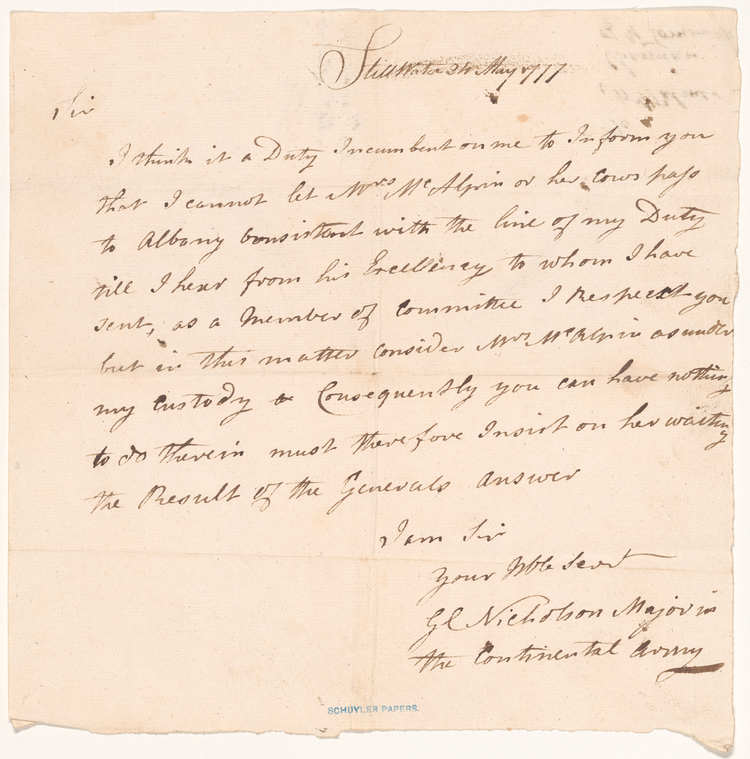 Still Water 26 May 1777
Sir
I think it a Duty Incumbent on me to Inform you
that I cannot let Mrs McAlpin or her cows pass
to Albany consistant with the line of my Duty
till I hear from his Excellency to whom I have
sent, as a Member of Committee I Respect you
but in this matter consider Mrs McAlpin as under
my custody & Consequently you can have nothing
to do therein must therefore Insist on her waiting
the Result of the Generals answer
I am Sir
your Hble Servt
Nicholson Major in
the Continental army
SCHUYLER PAPERS.